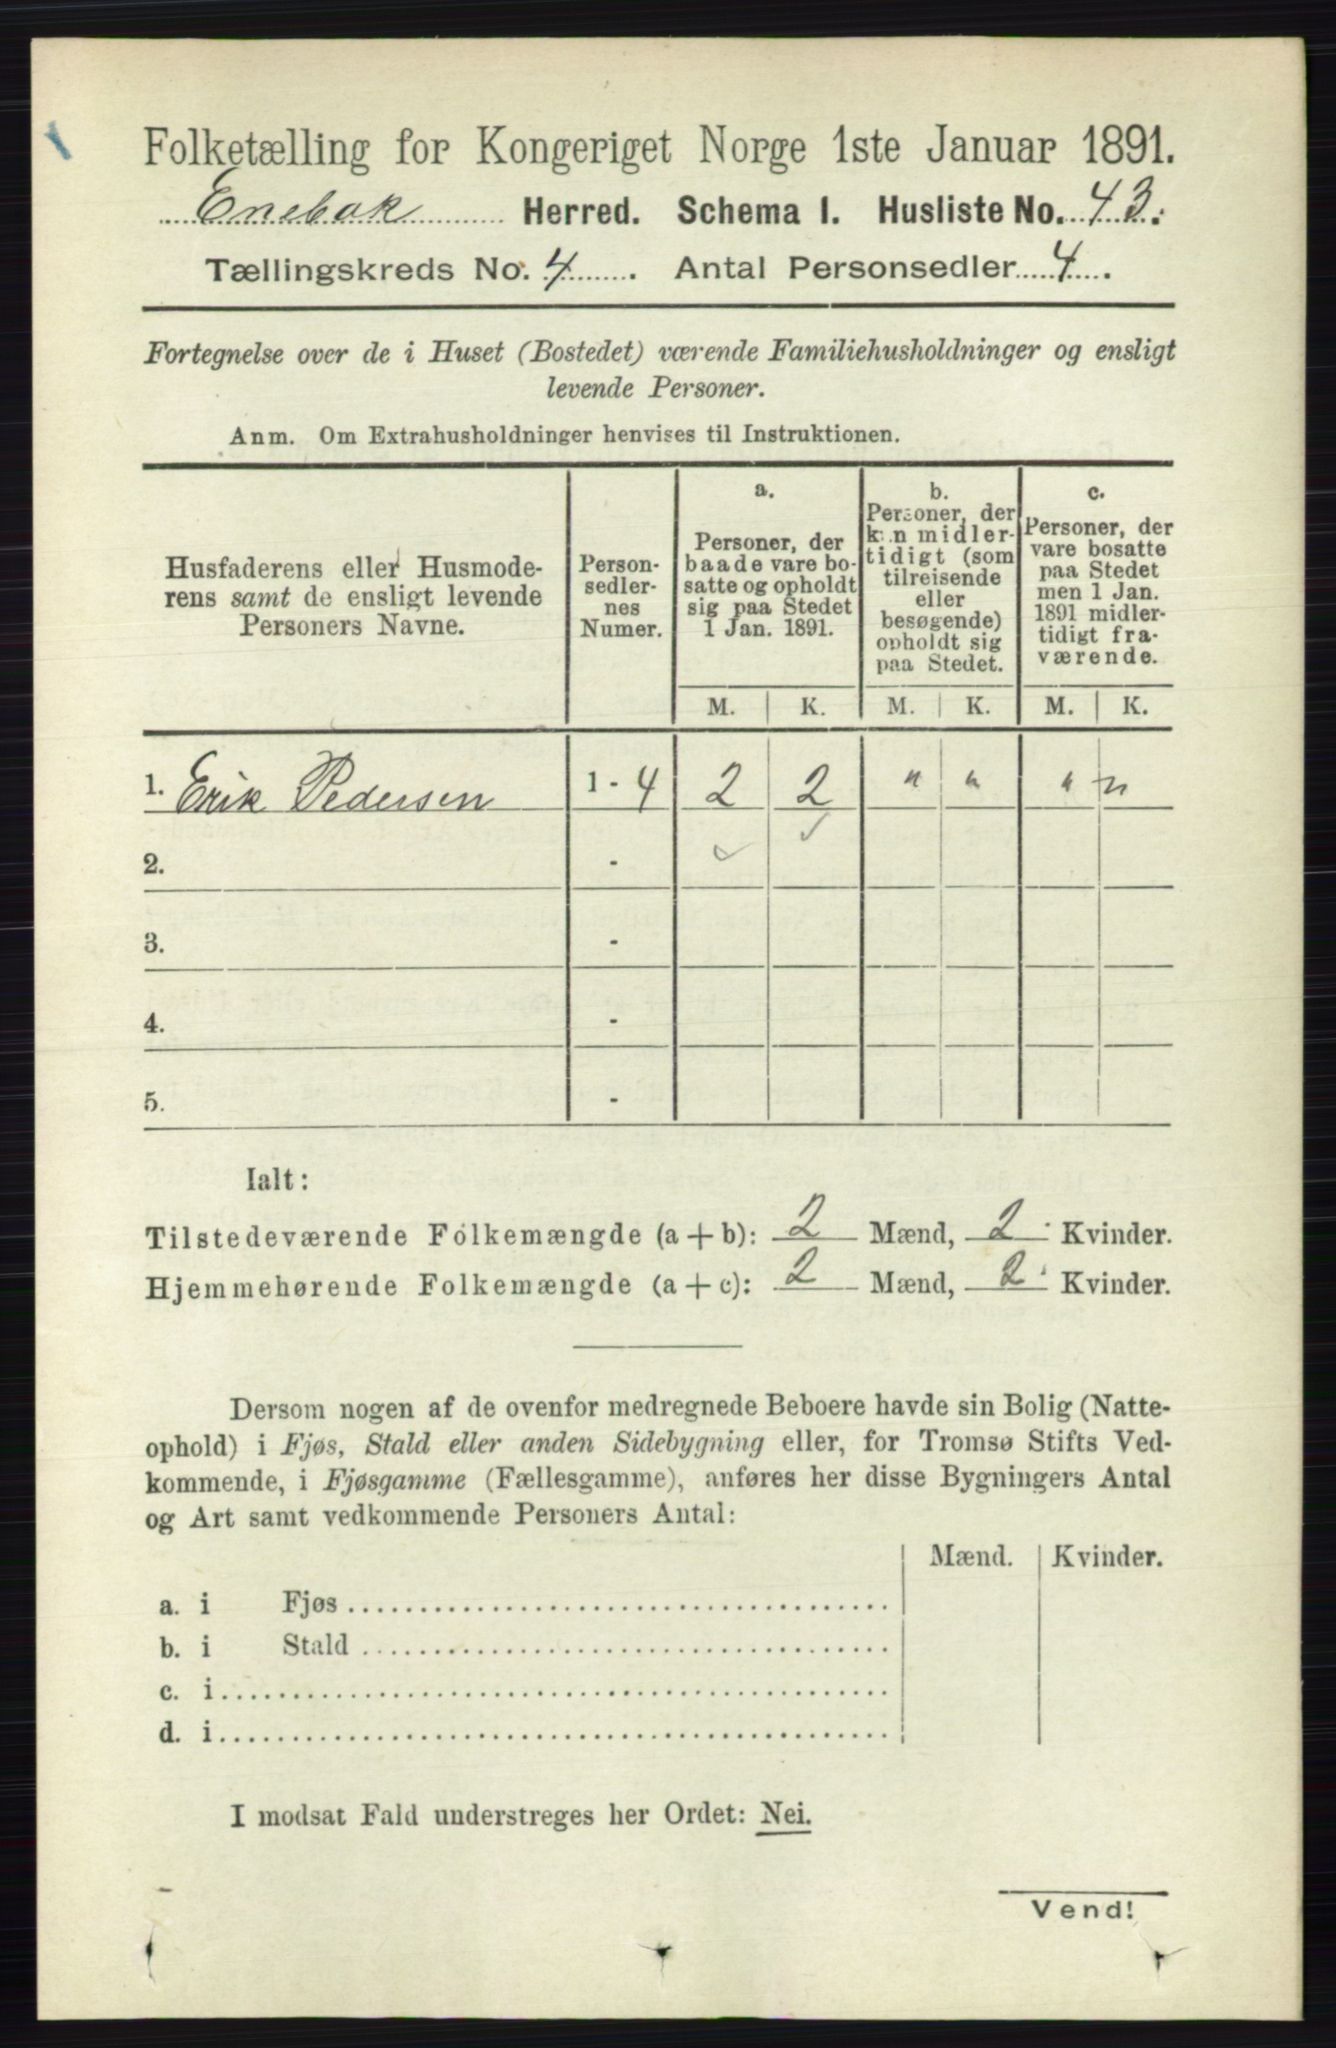 Folketælling for Kongeriget Norge 1ste Januar 1891.
Enebak Herred. Schema I. Husliste No. 43.
Tællingskreds No. 4. Antal Personsedler 4.
Fortegnelse over de i Huset (Bostedet) værende Familiehusholdninger og ensligt
levende Personer.
Anm. Om Extrahusholdninger henvises til Instruktionen.
Husfaderens eller Husmode-
rens samt de ensligt levende
Personers Navne.
Person-
sedler-
nes
Numer.
a.
Personer, der
baade vare bo-
satte og opholdt
sig paa Stedet
1 Jan. 1891.
b.
Personer, der
kun midler-
tidigt (som
tilreisende
eller
besøgende)
opholdt sig
paa Stedet.
c.
Personer, der
vare bosatte
paa Stedet
men 1 Jan.
1891 midler-
tidigt fra-
værende.
M. K. M. K. M. K.
1. Erik Pedersen 1 - 4 2 2 " " " "
2. -
3. -
4. -
5. -
Ialt:
Tilstedeværende Folkemængde (a + b): 2 Mænd, 2 Kvinder.
Hjemmehørende Folkemængde (a + c): 2 Mænd, 2 Kvinder.
Dersom nogen af de ovenfor medregnede Beboere havde sin Bolig (Natte-
ophold) i Fjøs, Stald eller anden Sidebygning eller, for Tromsø Stifts Ved-
kommende, i Fjøsgamme (Fællesgamme), anføres her disse Bygningers Antal
og Art samt vedkommende Personers Antal:
Mænd. Kvinder.
a. i Fjøs
b. i Stald
c. i
d. i
I modsat Fald understreges her Ordet: Nei.
Vend!